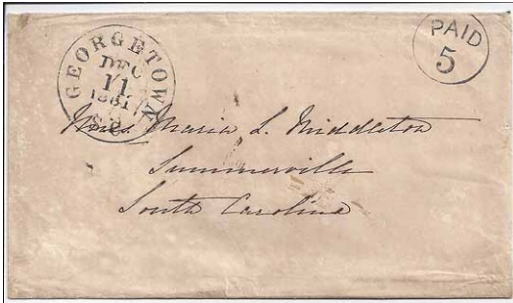 GEORGETOWN
DEC
11
1861
S.C.
PAID
5
Miss Maria L. Middleton
Summerville
South Carolina